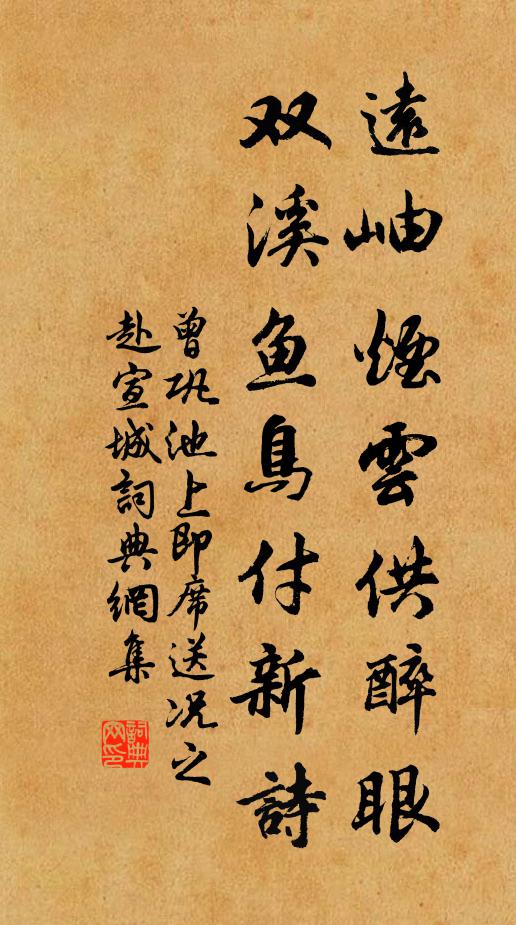 遠岫煙雲供醉眼
双溪鱼鳥付新詩
曾巩池上即席送况之
赴宣城詞典網集
詞典
网印